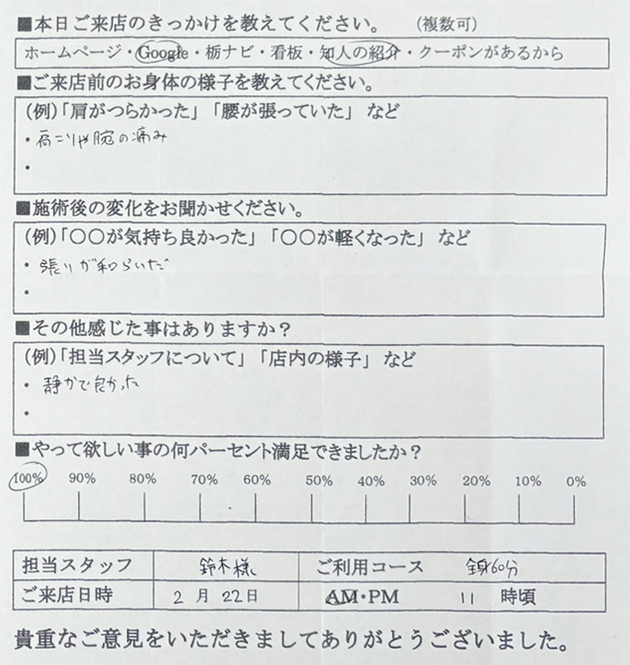 ■本日ご来店のきっかけを教えてください。　（複数可）
ホームページ・Google・栃ナビ・看板・知人の紹介・クーポンがあるから
■ご来店前のお身体の様子を教えてください。
（例）「肩がつらかった」「腰が張っていた」など
・肩こりや腕の痛み
・
■施術後の変化をお聞かせください。
（例）「〇〇が気持ち良かった」「〇〇が軽くなった」など
・張りが和らいだ
・
■その他感じた事はありますか？
（例）「担当スタッフについて」「店内の様子」など
・静かで良かった
・
■やって欲しい事の何パーセント満足できましたか？
100% 90% 80% 70% 60% 50% 40% 30% 20% 10% 0%
担当スタッフ 鈴木様 ご利用コース 全身60分
ご来店日時 2月22日 AM・PM 11時頃
貴重なご意見をいただきましてありがとうございました。